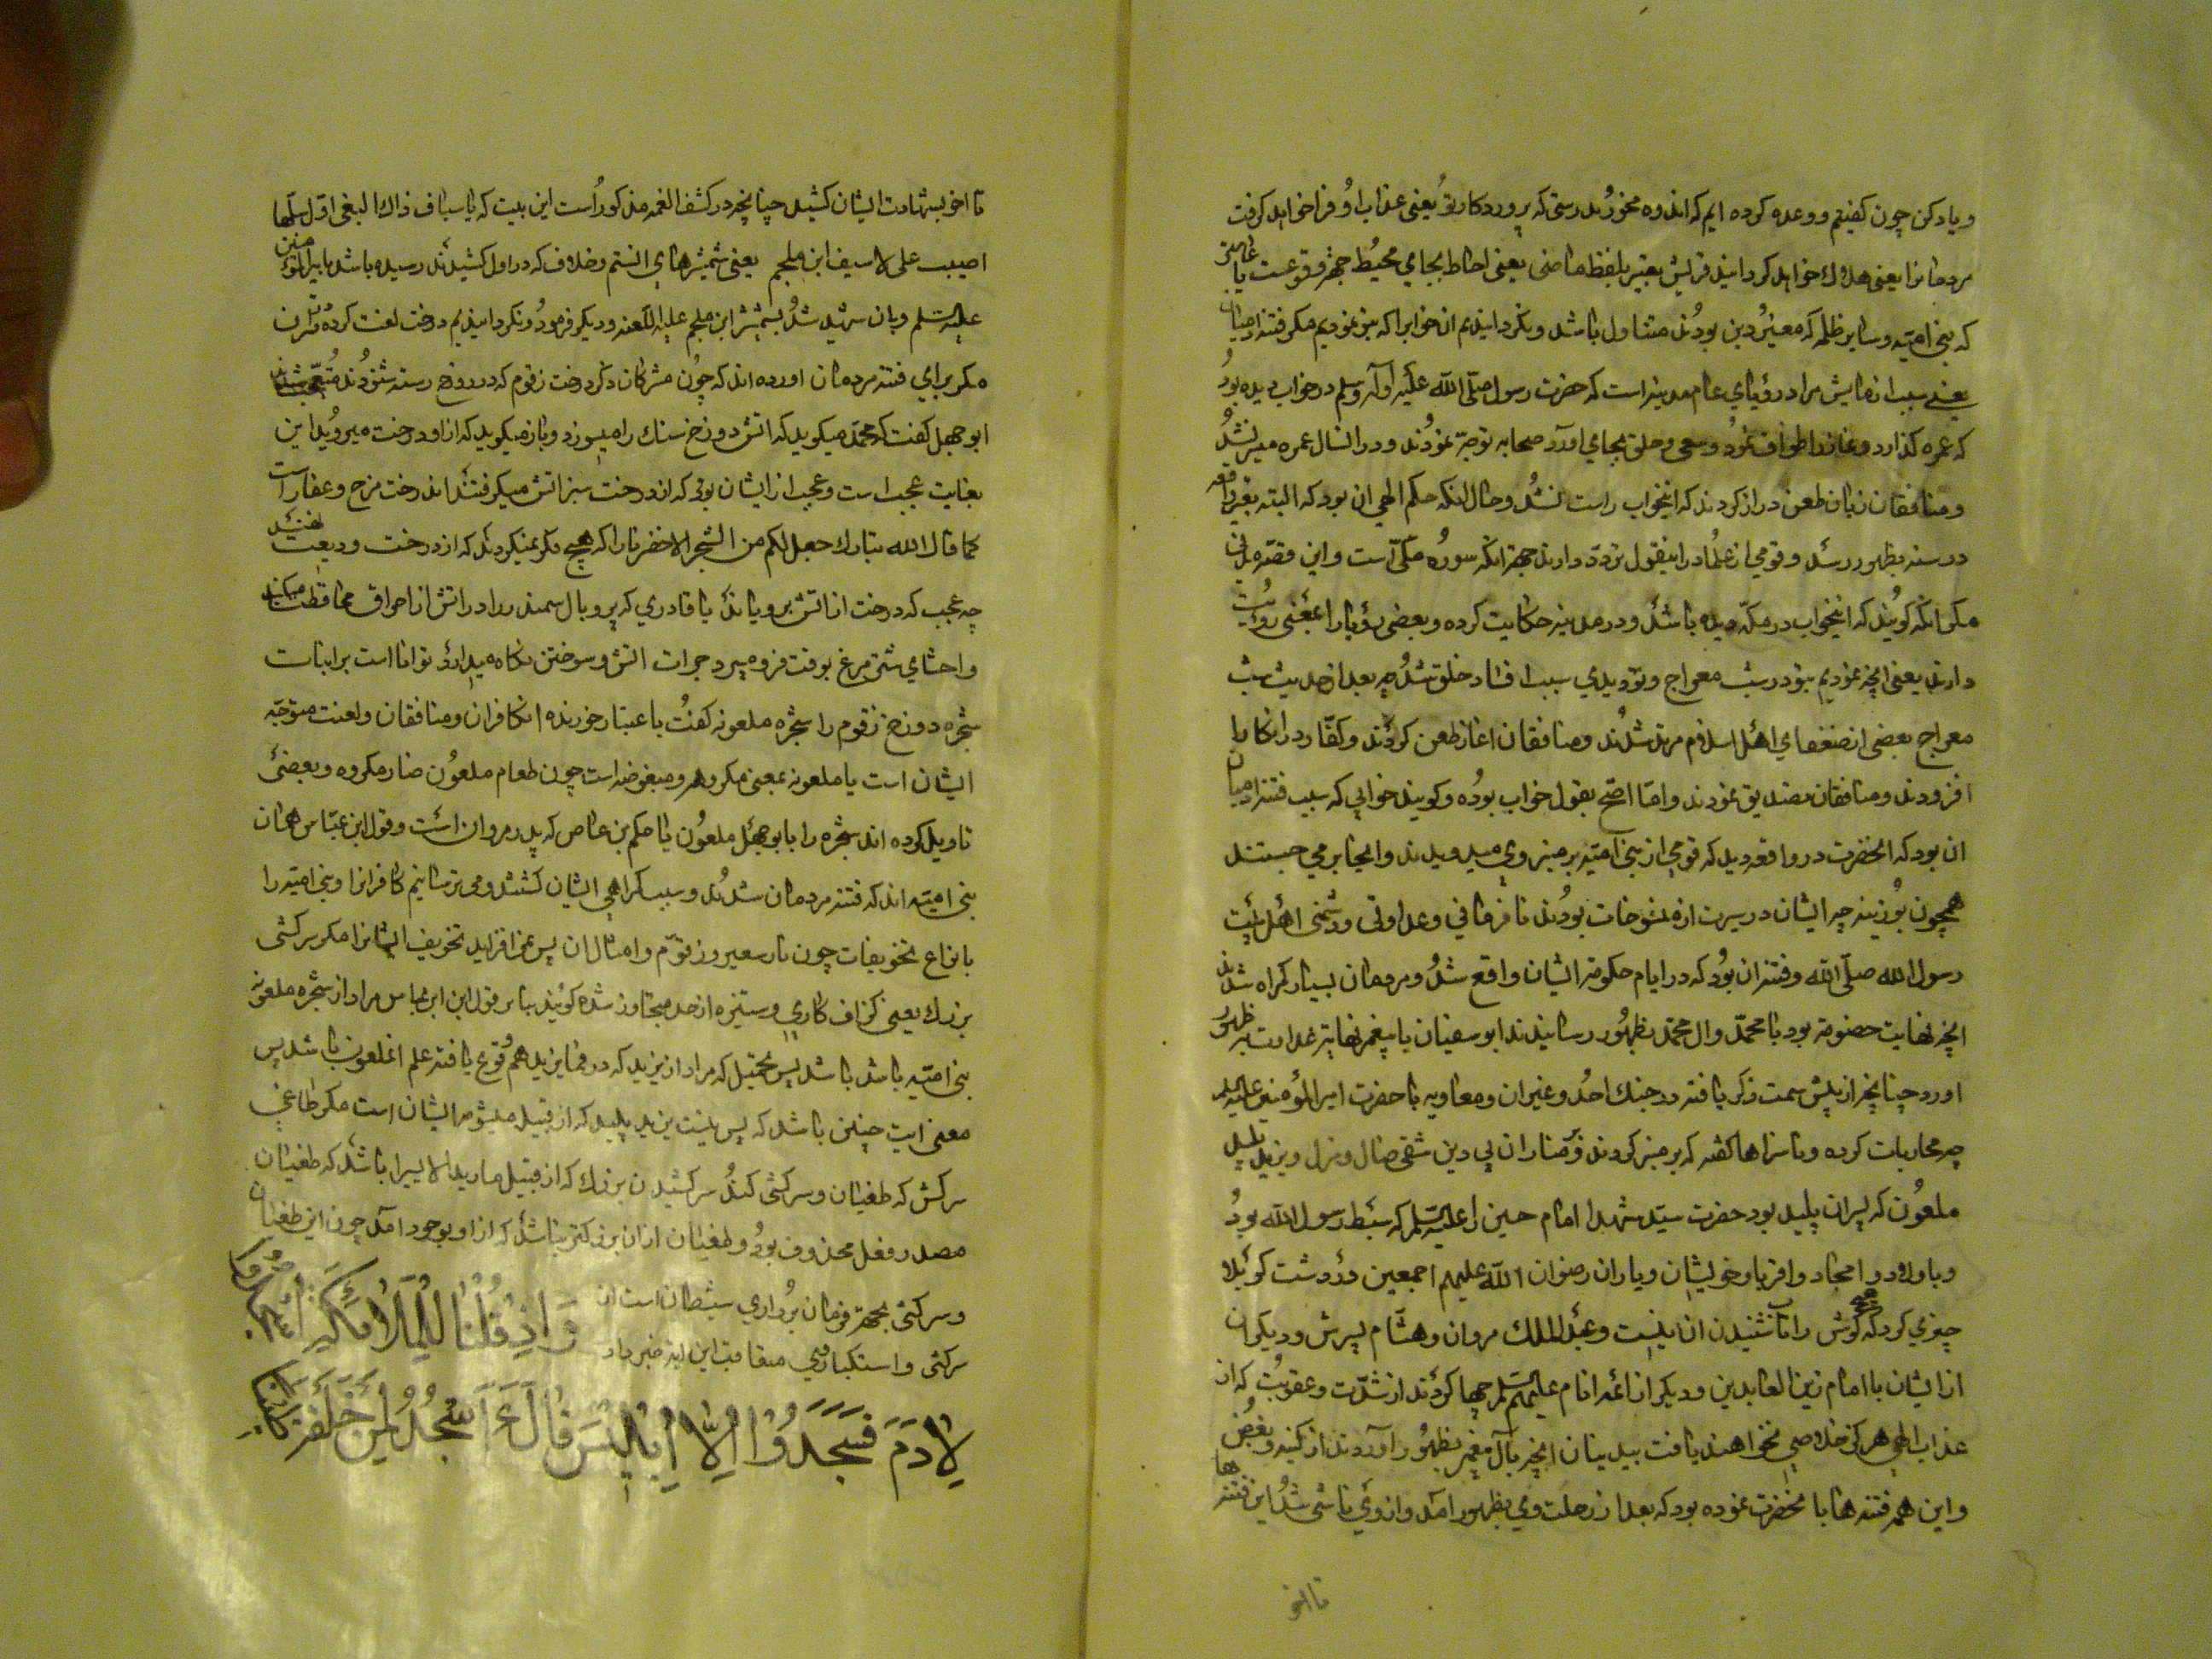 و یاد کن چون کفتیم و وعده کرده ایم که اندوه مخور بدرستی که پروردکار تو یعنی عذاب او فرا خواهد کرفت
مردمانرا یعنی هلاک خواهد کردانید قریش تعبیر بلفظ ماضی یعنی احاط بجای محیط جهة وقوعست یا عامتر
که بنی امیه و سایر ظلمه که مغیر دین بودند متناول باشد و نکردانیدیم ان خوابرا که بتو نمودیم مکر فتنه ادمیان
یعنی سبب ازمایش مراد رؤیای عام مدینه است که حضرت رسول صلی الله علیه وآله وسلم در خواب دیده بود
که عمره کذارد و خانه را طواف نمود و سعی و حلق بجای اورد صحابه توجه نمودند و در انسال عمره میسر نشد
و منافقان زبان طعن دراز کردند که اینخواب راست نشد و حال انکه حکم الهی ان بود که البته تعبیر واقعه
در سنه بظهور رسد و قومی از علما در اینقول تردد دارند جهة انکه سوره مکی است و این قصه مدنی
مکر انکه کویند که اینخواب در مکه دیده باشد و در مدینه حکایت کرده و بعضی رؤیا را بمعنی رویت
دارند یعنی انچه نمودیم بتو در شب معراج و تو دیدی سبب افتاد خلق شد چه بعد از حدیث شب
معراج بعضی از ضعفای اهل اسلام مرتد شدند و منافقان اغاز طعن کردند و کفار در انکار را
افزودند و منافقان تصدیق نمودند و اما اصح بقول خواب بوده و کویند خوابی که سبب فتنه ادمیان
ان بود که انحضرت در واقعه دید که قومی از بنی امیه بر منبر وی میدویدند و انجا بر می جستند
همچون بوزینه چه ایشان در سیرت ازه ممسوخات بودند نافرمانی و عداوتی و دشمنی اهل بیت
رسول الله صلی الله و فتنه ان بود که در ایام حکومة ایشان واقع شد و مردمان بسیار کمراه شدند
انچه نهایت خصومة بود با محمد وال محمد بظهور رسانیدند ابو سفیان با پیغمبر نهایة عداوت بر ظهور
اورد چنانچه از پیش سمت ذکر یافته در جنک احد و غیر ان و معاویه با حضرت امیر المؤمنین علیه السلم
چه محاربات کرده و ناسزاها کفته که بر منبر کردند فرمنا ران بی دین شقی ضال و مزل و یزید پلید
ملعون که پسر ان پلید بود حضرت سید شهدا امام حسین را علیه السلم که سبط رسول الله بود
و با اولاد و امجاد و اقربا و خویشان و یاران رضوان الله علیهم اجمعین در دشت کربلا
چیزی کرد که هیچ کوش را تاب شنیدن ان نیست و عبد الملک مروان و هشام پسرش و دیکران
از ایشان با امام زین العابدین و دیکر از ائمه انام علیهم السلم چها کردند از شدت و عقوبت که از
عذاب الهی هرکز خلاصی نخواهند یافت بیدینان انچه بآل پیغمبر بظهور آوردند از کینه و بغض
و این همه فتنه ها با نحضرت نموده بود که بعد از رحلت وی بظهور امد و از وی ناشی شد این فتنه ها
تا اخر
تا اخر بشهادت ایشان کشید چنانچه در کشف الغمه مذکور است این بیت که یا سیاف ذاک البغی اول سلها
اصیب علی لا سیف ابن ملجم یعنی شمشیرهای الستم و خلاف که در اول کشیدند رسیده باشد بامیر المؤمنین
علیه السلم و بان شهید شد بشمشیر ابن ملجم علیه اللعنه و دیکر فرمود و نکردانیدیم درخت لعنت کرده در قران
مکر برای فتنه مردمان اورده اند که چون مشرکان ذکر درخت زقوم که در دوزخ رسته شنودند متعجب شدند
ابو جهل کفت که محمد میکوید که اتش دوزخ سنک را میسوزد و باز میکوید که از او درخت میروید این
بغایت عجب است و عجب از ایشان بود که از درخت سبز اتش میکرفتند اند درخت مرخ و عفار است
کما قال الله تبارک جعل لکم من الشجر الاخضر نارا که هیچ فکر نمیکردند که از درخت ودیعت نهند
چه عجب که درخت از اتش برویاند یا قادری که پر و بال سمندر را در اتش از احراق محافظت میکند
و احشای شتر مرغ بوقت فرو میبرد جمرات اتش و سوختن نکاه میدارد توانا است بر انبات
شجره دوزخ زقوم را شجره ملعونه کفت باعتبار خورنده انکافران و منافقان و لعنت متوجه
ایشان است یا ملعونه بمعنی مکروهه و مبغوضه است چون طعام ملعون ضار مکروه و بعضی
تاویل کرده اند شجره را بابو جهل ملعون یا حکم بن عاص که پدر مروان است و قول ابن عباس همان
بنی امیه اند که فتنه مردمان شدند و سبب کمراهی ایشان کشتند و می ترسانیم کافرانرا و بنی امیه را
بانواع تخویفات چون نار سعیر و زقوم و امثال ان پس نمی افزاید تخویف ایشانرا مکر سرکشی
بزرک یعنی کزاف کاری و ستیزه از حد متجاوز شده کویند بنا بر قول ابن عباس مراد از شجره ملعونه
بنی امیه باشد باشد پس محتمل که مراد از یزید که در فما یزیدهم وقوع یافته علم انملعون باشد پس
معنی ایت چنین باشد که پس نیست یزید پلید که از قبیله میشوم ایشان است مکر طاغی
سرکش که طغیان و سرکشی کند سرکشیدن بزرک که از قبیل مار یدا لا بیرا باشد که طغیان
مصدر فعل محذوف بود و طغیان از ان بزرکتر نباشد که از او بوجود امد چون این طغیان
و سرکشی بجهة فرمان برداری شیطان است از
سرکشی و استکبار وی متعاقب این ایه خبر داد
وَاِذْ قُلْنَا لِلْمَلَائِكَةِ اسْجُدُوا
لِاٰدَمَ فَسَجَدُوا اِلَّا اِبْلِيسَ قَالَ ءَاَسْجُدُ لِمَنْ خَلَقْتَ طِينًا